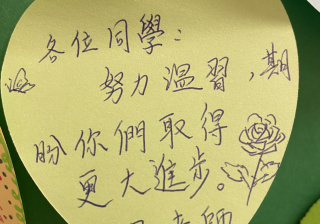 各位同學：
努力溫習，期
盼你們取得
更大進步。
老師